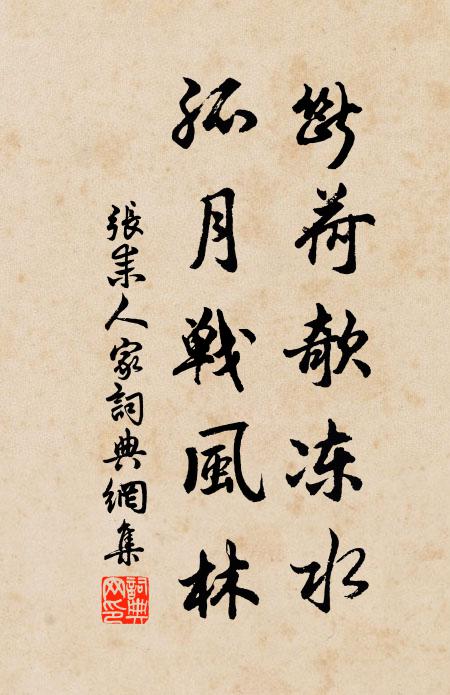 斷荷欹凍水
孤月戰風林
張耒人家詞典網集
詞典網印